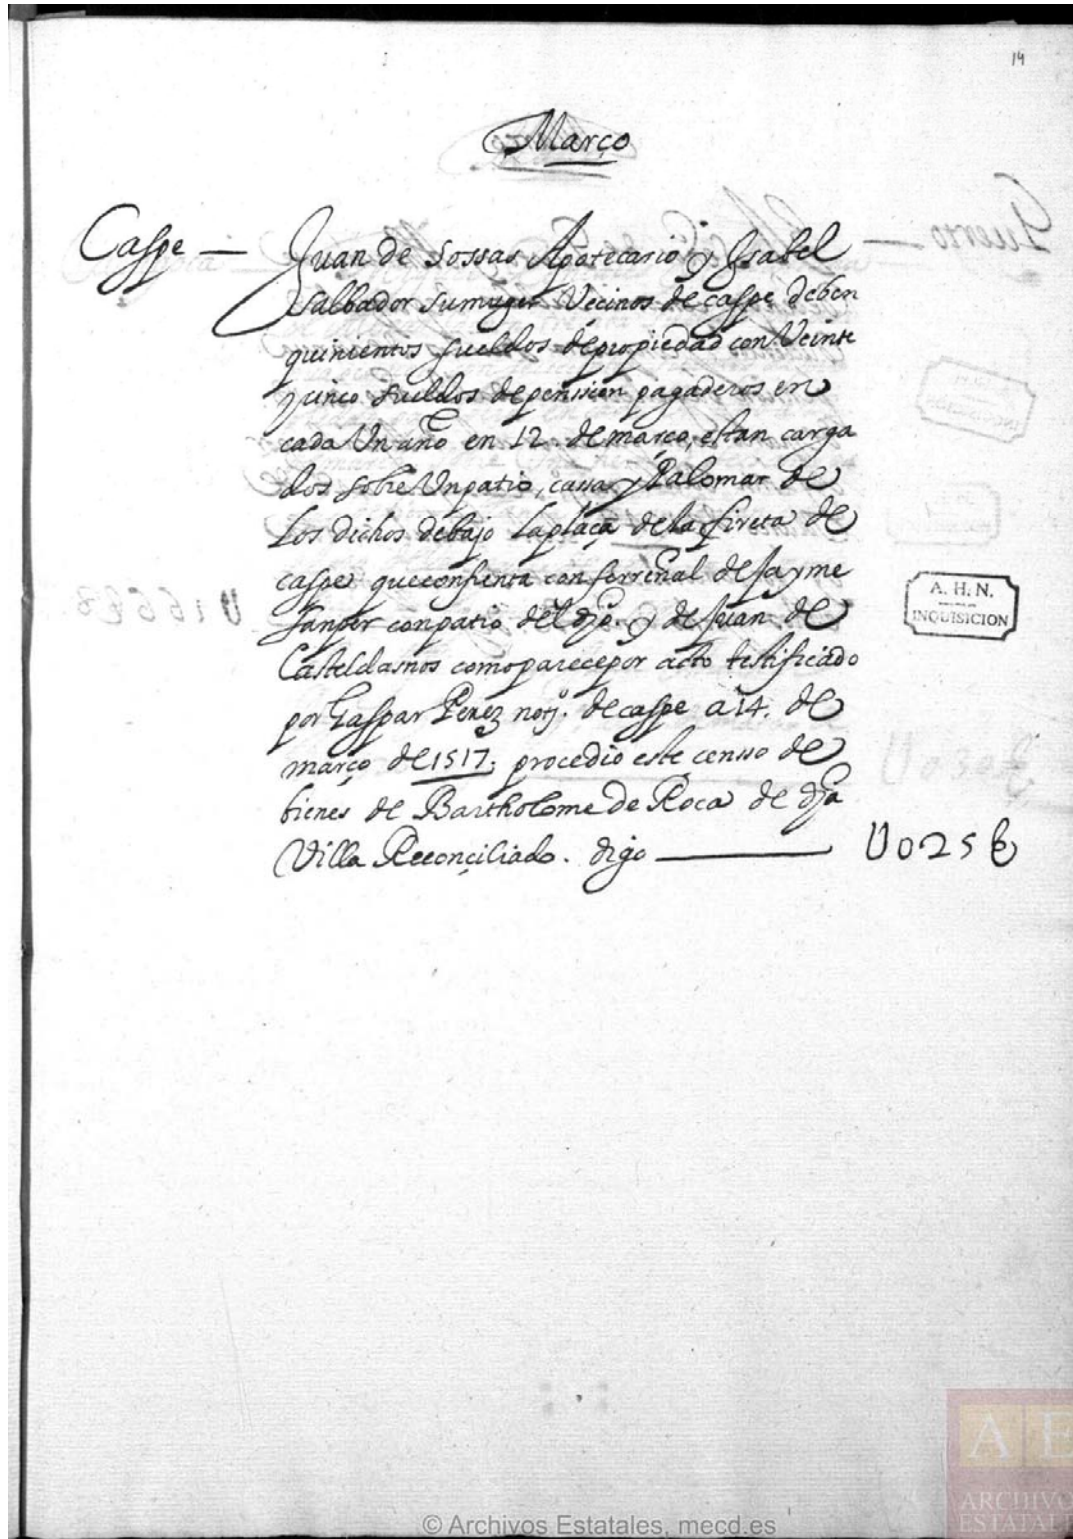 14
Março
Caspe — Juan de Sossas Apotecario y Ysabel
Salbador su muger Vecinos de caspe deben
quinientos sueldos de propiedad con Veinte
y cinco sueldos de pension pagaderos en
cada Un año en 12. de março, estan carga
dos sobre Un patio, cassa y Palomar de
Los dichos debajo la plaça de la fireta de
caspe que confrenta con ferreñal de Jayme
Sanper con patio del dho. y de Juan de
Casteldasnos como parece por acto testificado
por Gaspar Perez notº. de caspe a 14. de
março de 1517. procedio este censso de
bienes de Bartholome de Roca de dha
Villa Reconçiliado. digo — U025 ẜ
A. H. N.
INQUISICION
© Archivos Estatales, mecd.es
A E
ARCHIVO
ESTATAL